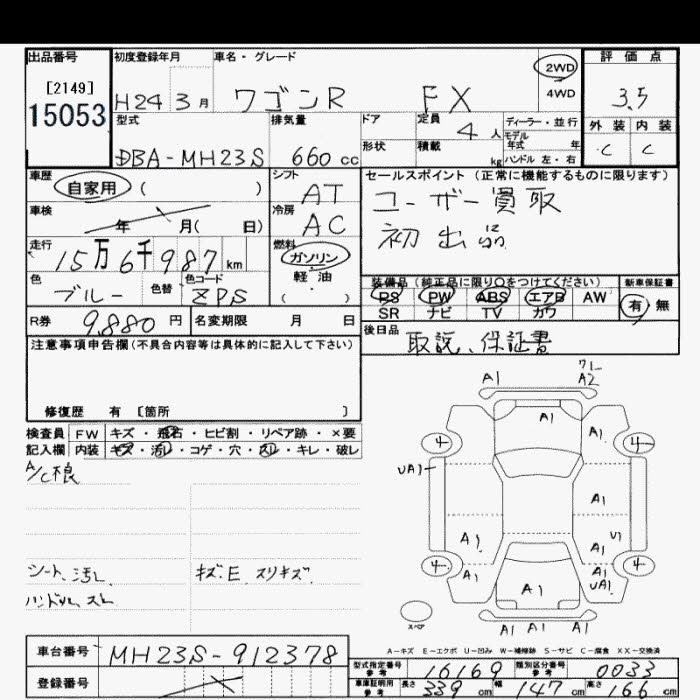 出品番号 初度登録年月 車名・グレード 評価点
[2149] 2WD
15053 H24 3月 ワゴンR FX 4WD 3.5
型式 排気量 ドア 定員 4人 ディーラー・並行 外装 内装
モデル年式 年
DBA-MH23S 660cc 形状 積載 kg ハンドル 左・右 C C
車歴 シフト セールスポイント (正常に機能するものに限ります)
自家用 ( ) AT ユーザー買取
車検 冷房 初出品
年 月( 日) AC
走行 燃料
15万6千987km ガソリン
軽・油
色 色替 色コード 装備品 (純正品に限り○をつけてください) 新車保証書
ブルー ZPS ( ) PS PW ABS エアB AW 有・無
SR ナビ TV カワ
R券 9,880円 名変期限 月 日 後日品
取説、保証書
注意事項申告欄(不具合内容等は具体的に記入して下さい)
修復歴 有 [箇所 ]
検査員 FW キズ・飛石・ヒビ割・リペア跡・×要
記入欄 内装 キズ・汚れ・コゲ・穴・スレ・キレ・破レ
A/C不良
シート、汚レ キズ.E スリキズ.
ハンドル、スレ
A1 ワレ
A2
A1 A1
4 4
UA1
A1
A1 U1
A1
4 4
A1 A1
A1 UA1
A1 A1 A1
スペア
A-キズ E-エクボ U-凹み W-補修跡 S-サビ C-腐食 XX-交換済
車台番号 MH23S-912378
型式指定番号 参考 16169 類別区分番号 参考 0033
登録番号
車庫証明用 参考 長さ 339cm 幅 147cm 高さ 166cm